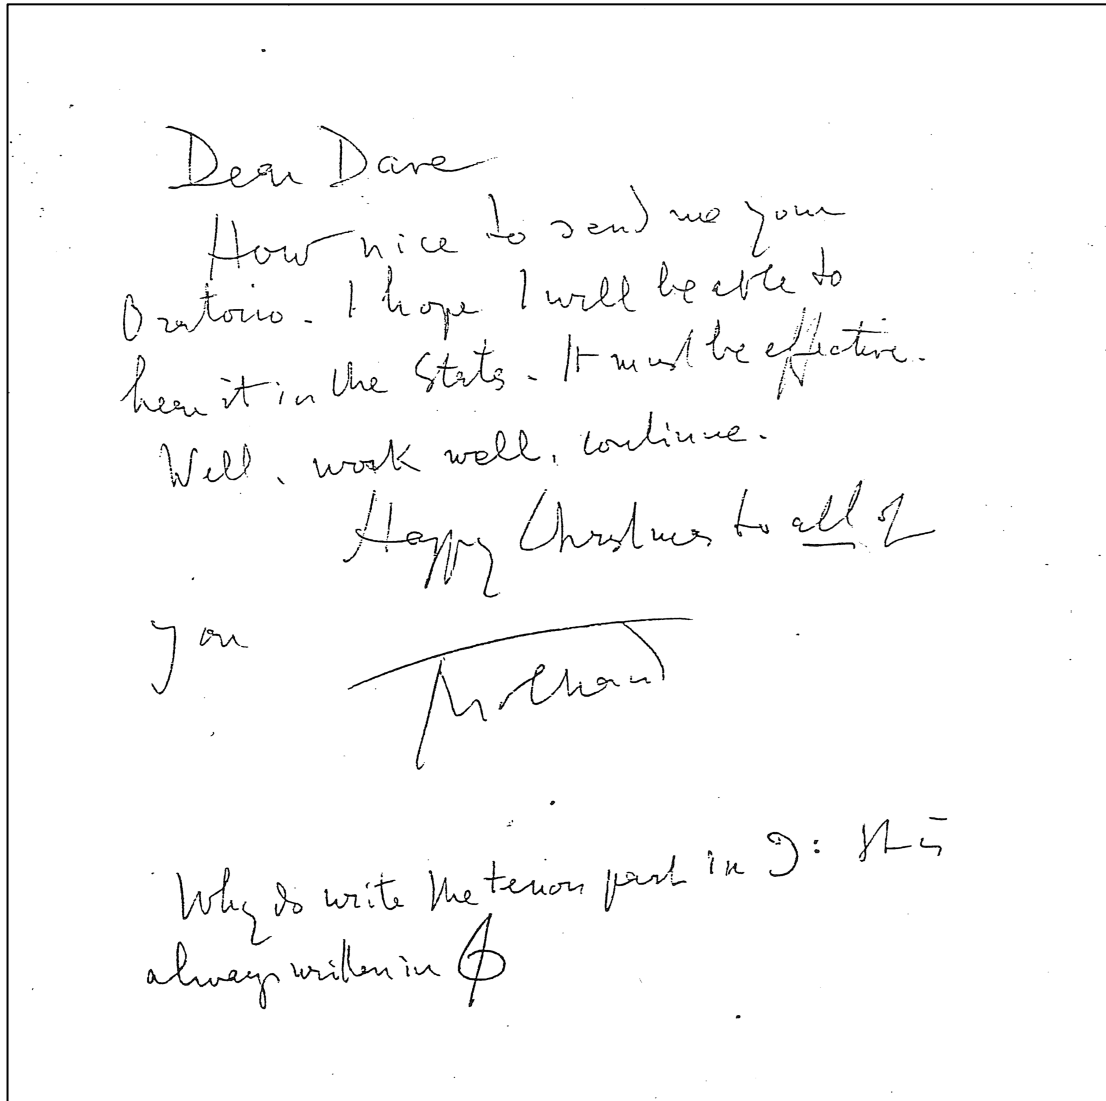 Dear Dave
How nice to send me your
Oratorio. I hope I will be able to
hear it in the States. It must be effective.
Well, work well, continue.
Happy Christmas to all of
you
Milhaud
Why do write the tenor part in 𝄢 It is
always written in 𝄞